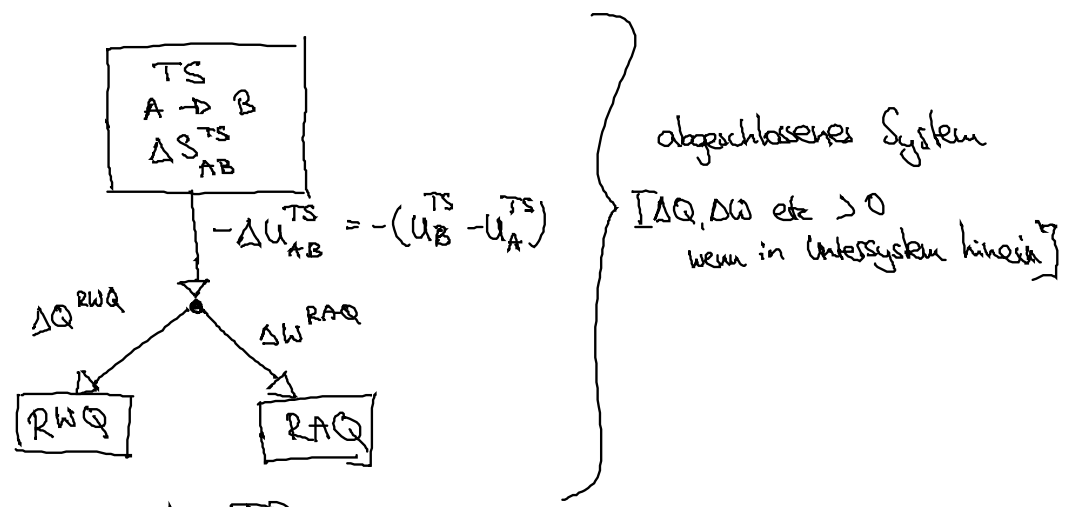 TS
A → B
ΔS_AB^TS
-ΔU_AB^TS = -(U_B^TS - U_A^TS)
ΔQ^RWQ
ΔW^RAQ
RWQ
RAQ
abgeschlossenes System
[ΔQ, ΔW etc > 0
wenn in Untersystem hinein]